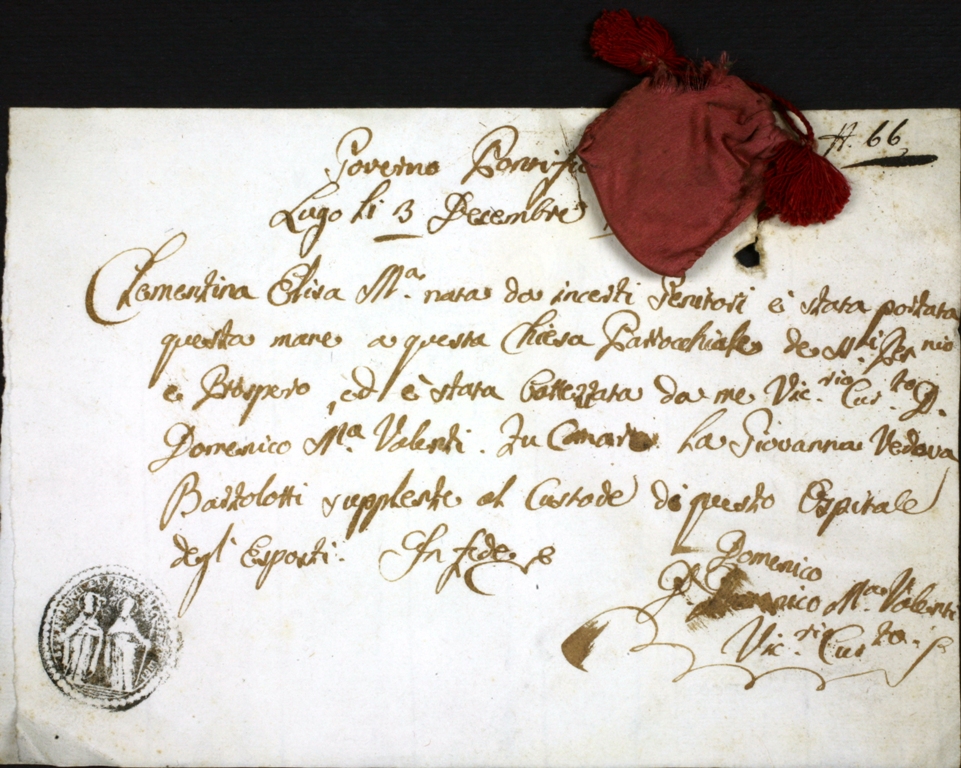 N. 66
Governo Pontifi
Lugo li 3 Decembre
Clementina Elisa Mª. nata da incerti Genitori è stata portata
questa mane a questa Chiesa Parrocchiale de
e Prospero, ed è stata battezzata da me Vic.rio Cur.to D.
Domenico Mª. Valenti. Fu Comare la Giovanna Vedova
Bartolotti supplente al Custode di questo Ospitale
degl' Esposti. In fede
Domenico
D. Domenico Mª Valenti
Vic. Cur.to